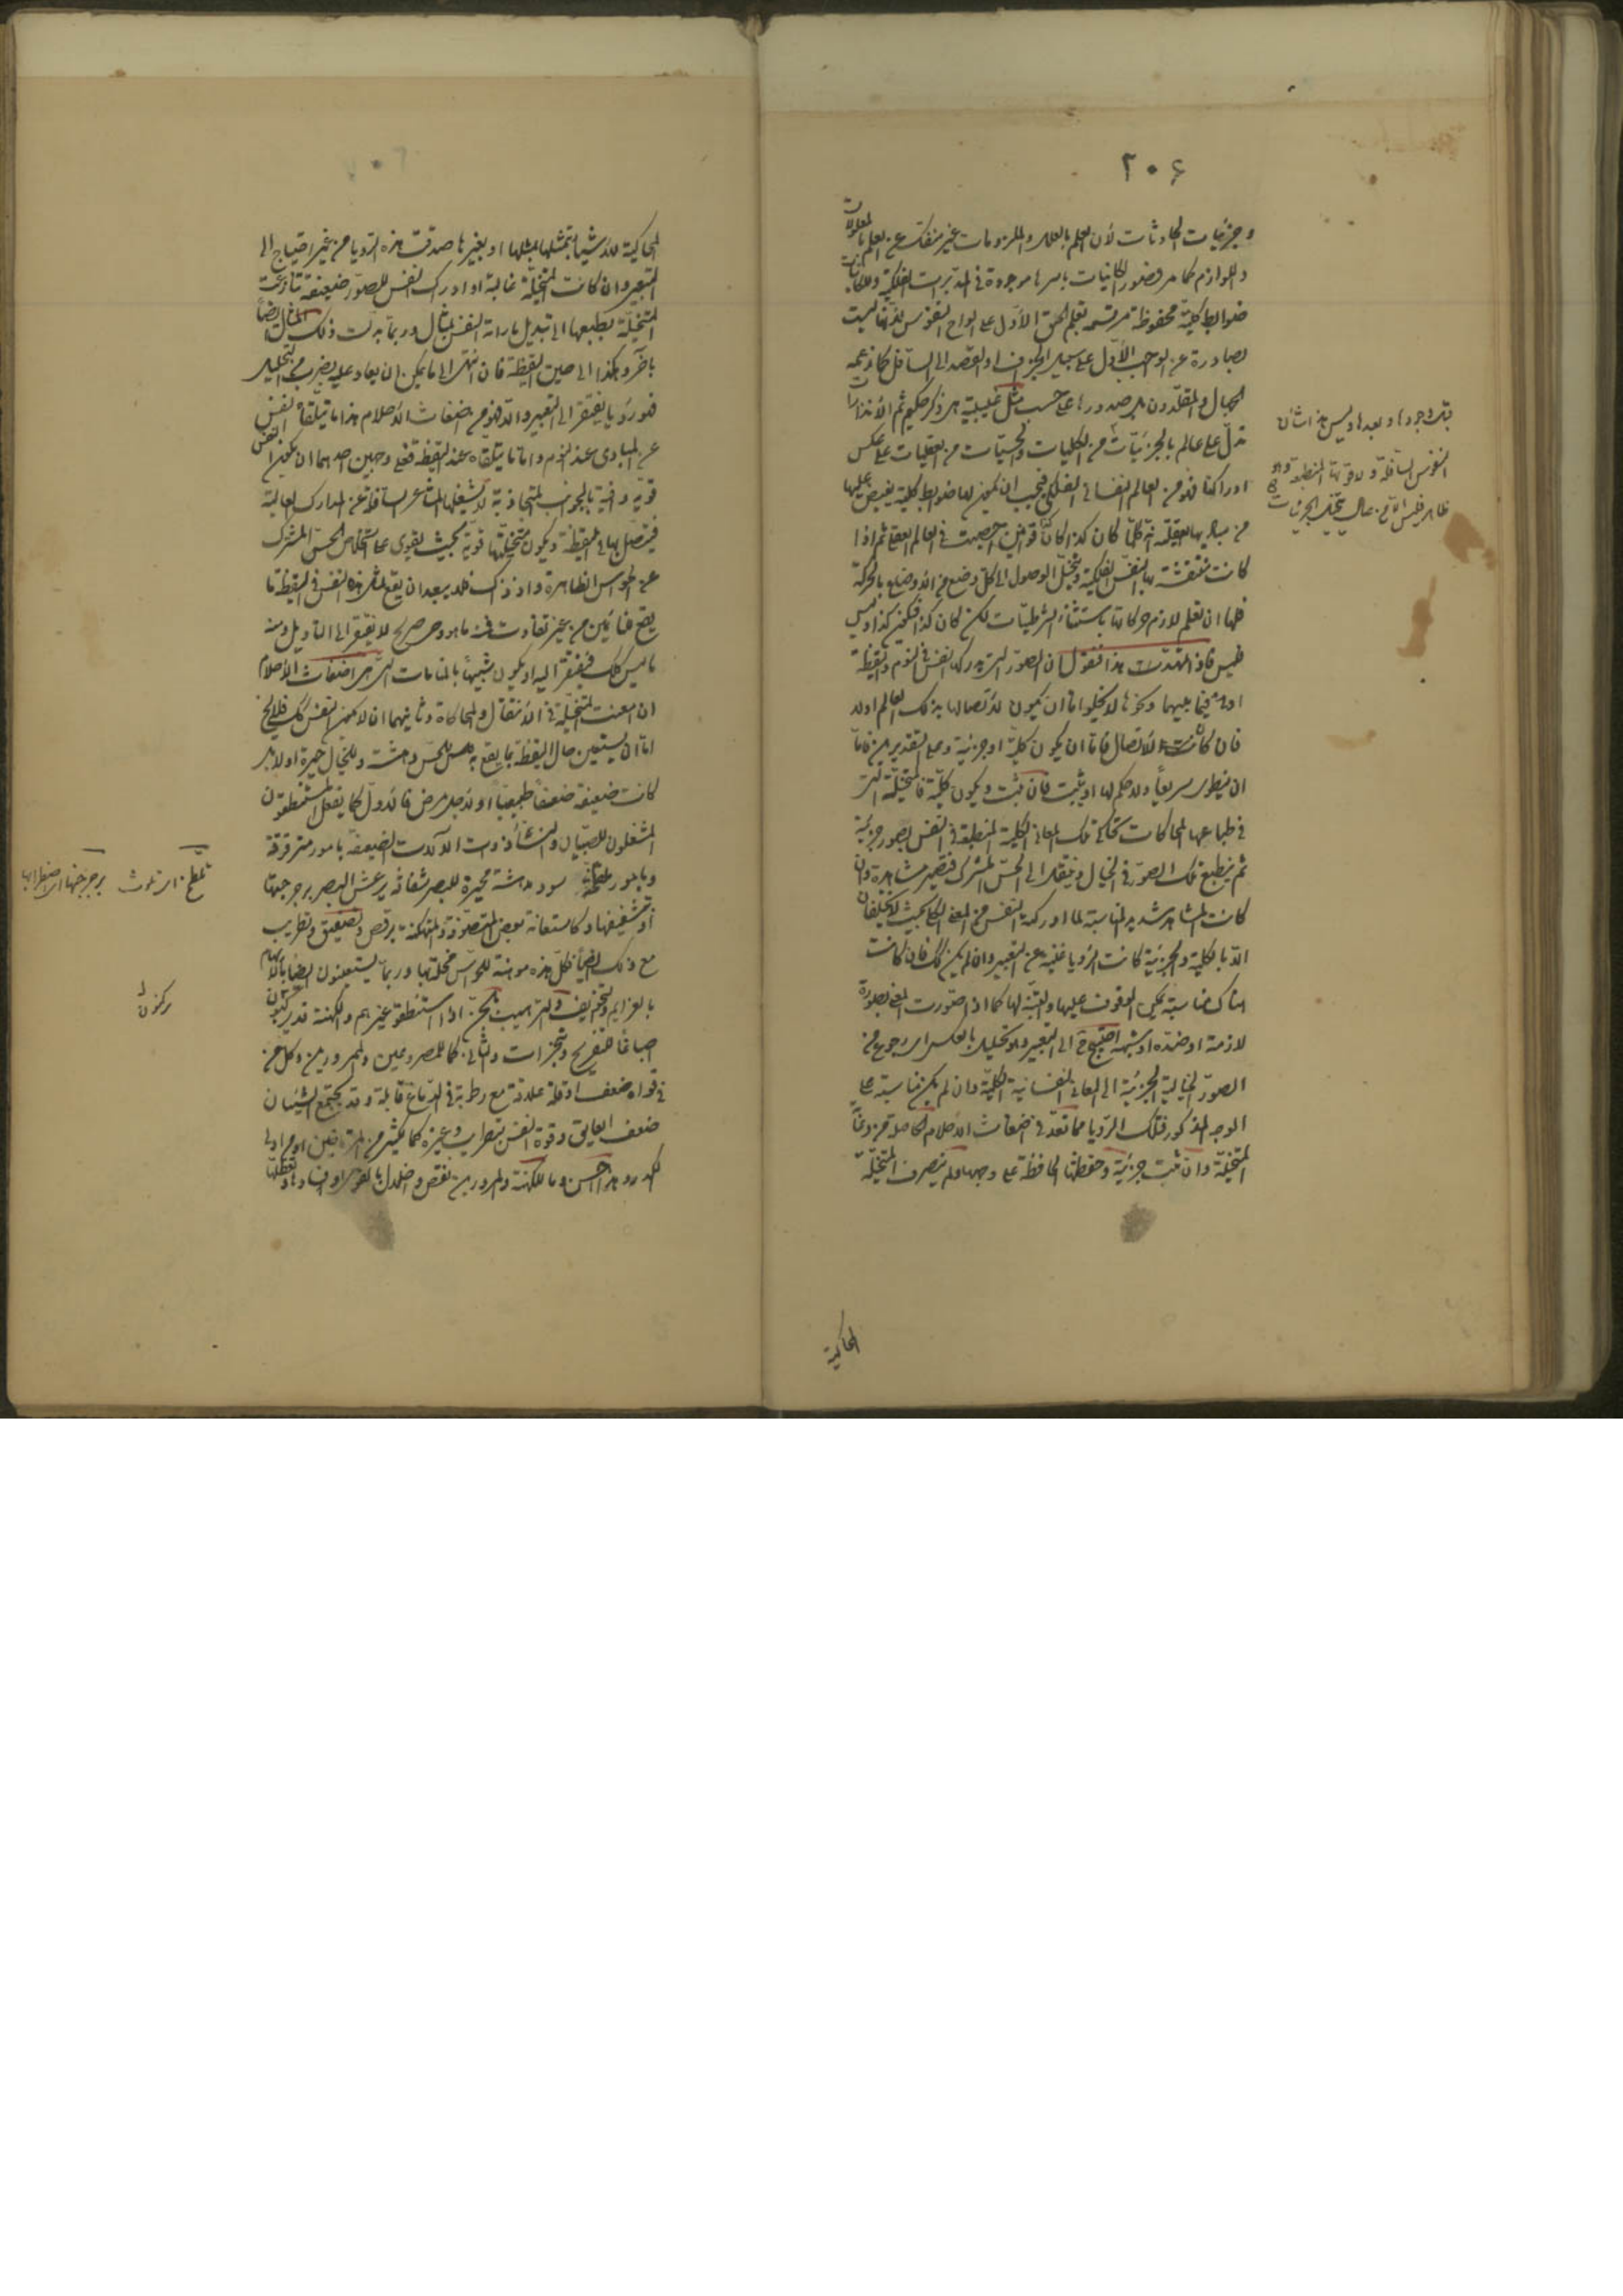 ٢٠۶
وجزئيات الحادثات لأن العلم بالعلل والملزومات غير منفك عن العلم بالمعلولات
واللوازم كما مر فصور الكائنات باسرها موجودة فى المدبرات الفلكية وللكائنات
ضوابط كلية محفوظة مرتسمة تعلم الحق الأول على الواح النفوس لأنها ليست
بصادرة عن الواجب الأول على سبيل الجزاف او القصد الى السافل كما زعمه
الجهال والمقلدون بل صدورها على حسب مثل غيبية هى ذكر حكيم ثم الانذارات
تدل على عالم بالجزئيات من الكليات والحسيات من العقليات على عكس
ادراكنا فهو من العالم النفسانى الفلكى فيجب ان يكون لها ضوابط كلية يفيض عليها
من مباديها العقلية انه كلما كان كذا كان كذا قوانين احصيت فى العالم العقلى ثم اذا
كانت منتقشة بها النفس الفلكية وتخيل الوصول الى كل وضع من الأوضاع بالحركة
فلها ان تعلم لازم حركاتها باستثناء الشرطيات لكن كان كذا فيكون كذا وليس
فليس فاذا تمهدت هذا فنقول ان الصور التى يدركها النفس فى النوم واليقظة
او فيما بينهما ونحوها لا يخلو اما ان يكون لاتصالها بذلك العالم اولا
فان كانت للاتصال فاما ان يكون كلية او جزئية وعلى التقديرين فاما
ان ينطوى سريعاً ولا حكم لها او يثبت فان ثبت ويكون كلية فالمتخيلة التى
فى طباعها المحاكات تحاكى تلك المعانى الكلية المنطبعة فى النفس بصور جزئية
ثم ينطبع تلك الصور فى الخيال وينتقل الى الحس المشترك فتصير مشاهدة فان
كانت المشاهد شديد المناسبة لما ادركه النفس من المعنى الكلى بحيث لا يختلفان
الا بالكلية والجزئية كانت الرؤيا غنية عن التعبير وان لم يكن كك فان كانت
هناك مناسبة يمكن الوقوف عليها والتنبه لها كما اذا صورت المعنى بصورة
لازمة او ضده او شبهه احتيج ح الى التعبير وهو تحليل بالعكس اى رجوع من
الصور الخيالية الجزئية الى المعانى النفسانية الكلية وان لم يكن مناسبة على
الوجه المذكور فتلك الرؤيا مما تعد فى اضغاث الأحلام الحاصلة من دعابة
المتخيلة وان ثبت جزئية وحفظتها الحافظة على وجهها ولم يتصرف المتخيلة
المحاكية
النفوس السافلة
ظاهر فليس
المحاكية للاشياء بتمثلها لمثلها او بغيرها صدقت هذه الرؤيا من غير احتياج الى
التعبير وان كانت المتخيلة غالبة او ادراك النفس للصور ضعيفة تنازعت
المتخيلة بطبعها الى تبديل ما راته النفس بمثال وربما بدلت ذلك المثال ايضاً
باخر وهكذا الى حين اليقظة فان انتهى الى ما يمكن ان يعاد عليه بضرب من التحليل
فهو رؤيا يفتقر الى التعبير والا فهو من اضغاث الأحلام هذا ما يتلقاه النفس
عن المبادى عند النوم واما ما يتلقاه عند اليقظة فعلى وجهين احدهما ان يكون النفس
قوية وافية بالجوانب المتجاذبة لا يشغلها المشاعر السافلة عن المدارك العالية
فيتصل بها فى اليقظة ويكون متخيلتها قوية بحيث يقوى على استخلاص الحس المشترك
عن الحواس الظاهرة واذ ذاك فلا يبعد ان يقع لمثل هذه النفس فى اليقظة ما
يقع للنائمين من غير تفاوت فمنه ما هو وحى صريح لا يفتقر الى التأويل ومنه
ما ليس كك فيفتقر اليه او يكون شبيهاً بالمنامات التى هى اضغاث الاحلام
ان امعنت المتخيلة فى الانتقال والمحاكاة وثانيهما ان لا يكون النفس كك فلا يخ
اما ان يستعين حال اليقظة بما يقع به للحس دهشة وللخيال حيرة اولا بل
كانت ضعيفة ضعفاً طبيعياً او لأجل مرض فالأول كما يفعل المستنطقون
المشغلون للصبيان والنساء ذوات الآلات الضعيفة بامور مترقرقة
وبامور ملطخة سود مدهشة محيرة للبصر شفافة يرعش البصر برجرجتها
او تشفيفها وكاستعانة بعض المتصوفة والمتكهنة برقص وتصفيق وتطريب
مع ذلك ايضاً فكل هذه موهنة للحواس مخلة بها وربما يستعينون ايضاً بالايهام
بالعزايم والتخويف والترهيب بالجن اذا استنطقوا غيرهم والكهنة قد يركبون
اصباغاً للتفريح وتبخيرات والثانى كما للمصروعين والممرورين وكل من
فى قواه ضعف او قلة علاقة مع رطوبة فى الدماغ قابلة وقد يجتمع الشيئان
ضعف العايق وقوة النفس بتطريب وغيره كما لكثير من المرتاضين اولى
الكدر وهذا حسن وما للكهنة والممرورين نقص وضلال
تلطخ اى تلوث
برجرجتها اى اضطرابها
يركنون